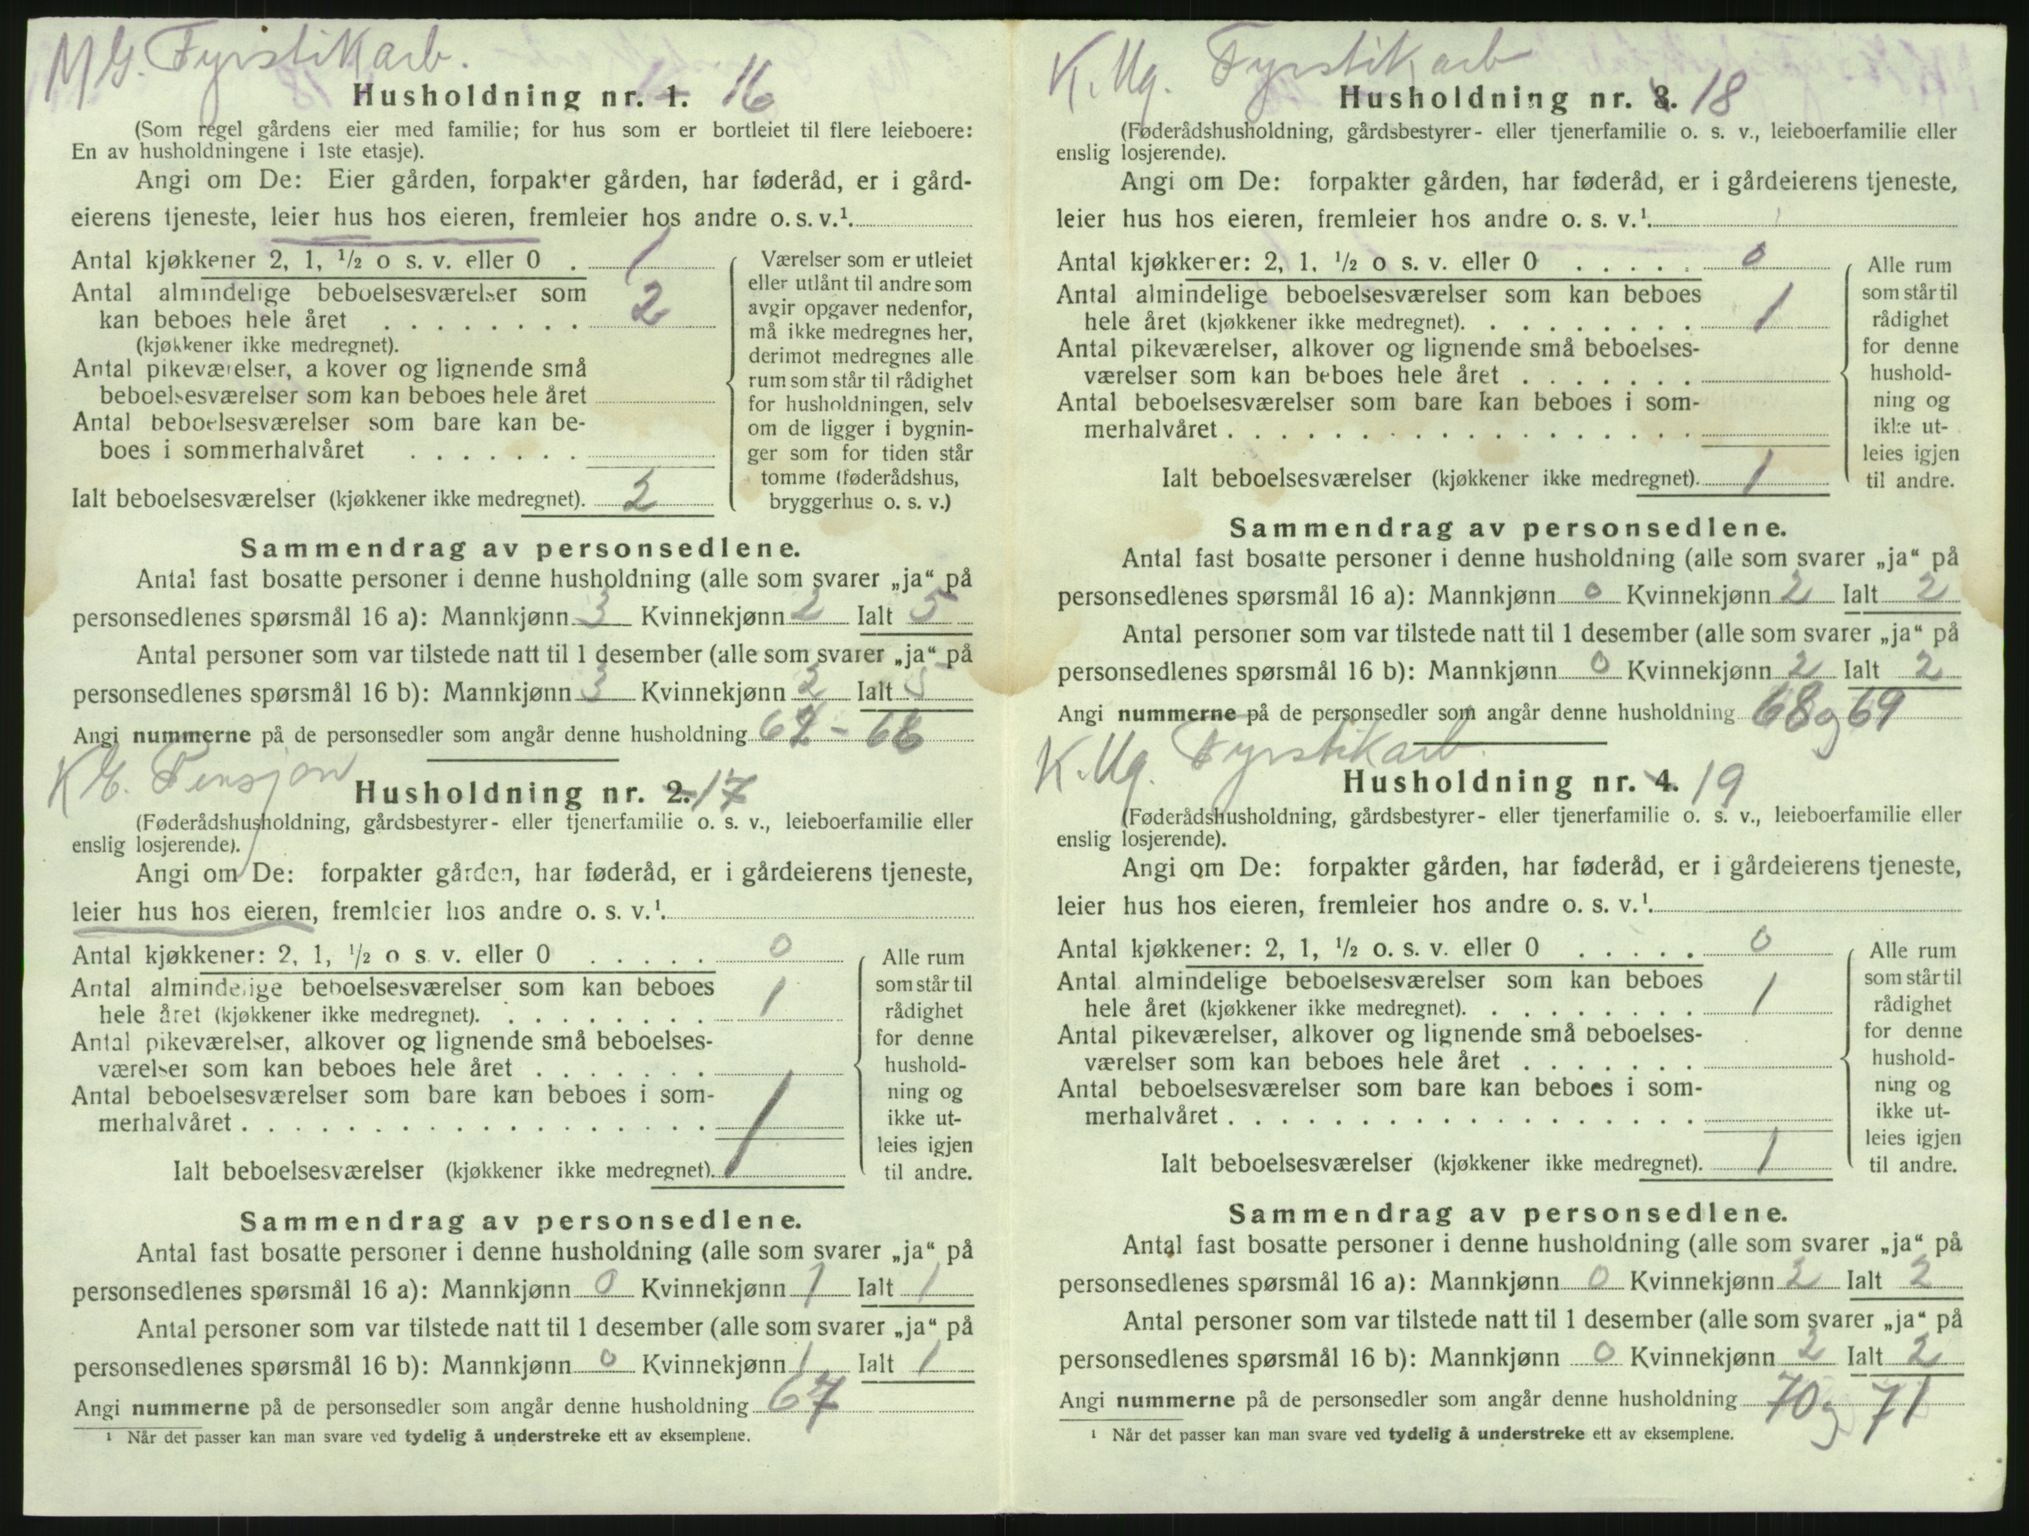 M G. Fyrstikarb.
Husholdning nr. 1. 16
(Som regel gårdens eier med familie; for hus som er bortleiet til flere leieboere:
En av husholdningene i 1ste etasje).
Angi om De: Eier gården, forpakter gården, har føderåd, er i gård-
eierens tjeneste, leier hus hos eieren, fremleier hos andre o. s. v.¹.
Antal kjøkkener 2, 1, ½ o s. v. eller 0 . 1
Antal almindelige beboelsesværelser som
kan beboes hele året . . . . . . . . 2
(kjøkkener ikke medregnet).
Antal pikeværelser, a kover og lignende små
beboelsesværelser som kan beboes hele året
Antal beboelsesværelser som bare kan be-
boes i sommerhalvåret . . . . . . .
Ialt beboelsesværelser (kjøkkener ikke medregnet). 2
Værelser som er utleiet
eller utlånt til andre som
avgir opgaver nedenfor,
må ikke medregnes her,
derimot medregnes alle
rum som står til rådighet
for husholdningen, selv
om de ligger i bygnin-
ger som for tiden står
tomme (føderådshus,
bryggerhus o. s. v.)
Sammendrag av personsedlene.
Antal fast bosatte personer i denne husholdning (alle som svarer „ja“ på
personsedlenes spørsmål 16 a): Mannkjønn 3 Kvinnekjønn 2 Ialt 5
Antal personer som var tilstede natt til 1 desember (alle som svarer „ja“ på
personsedlenes spørsmål 16 b): Mannkjønn 3 Kvinnekjønn 2 Ialt 5
Angi nummerne på de personsedler som angår denne husholdning 62 - 66
K E. Pensjon
Husholdning nr. 2. 17
(Føderådshusholdning, gårdsbestyrer- eller tjenerfamilie o. s. v., leieboerfamilie eller
enslig losjerende).
Angi om De: forpakter gården, har føderåd, er i gårdeierens tjeneste,
leier hus hos eieren, fremleier hos andre o. s. v.¹.
Antal kjøkkener: 2, 1, ½ o s. v. eller 0 . . . . . 0
Antal almindelige beboelsesværelser som kan beboes
hele året (kjøkkener ikke medregnet). . . . . . . . . 1
Antal pikeværelser, alkover og lignende små beboelses-
værelser som kan beboes hele året . . . . . . .
Antal beboelsesværelser som bare kan beboes i som-
merhalvåret . . . . . . . . . . . . . . . . . .
Ialt beboelsesværelser (kjøkkener ikke medregnet). 1
Alle rum
som står til
rådighet
for denne
hushold-
ning og
ikke ut-
leies igjen
til andre.
Sammendrag av personsedlene.
Antal fast bosatte personer i denne husholdning (alle som svarer „ja“ på
personsedlenes spørsmål 16 a): Mannkjønn 0 Kvinnekjønn 1 Ialt 1
Antal personer som var tilstede natt til 1 desember (alle som svarer „ja“ på
personsedlenes spørsmål 16 b): Mannkjønn 0 Kvinnekjønn 1 Ialt 1
Angi nummerne på de personsedler som angår denne husholdning 67
¹ Når det passer kan man svare ved tydelig å understreke ett av eksemplene.
K. Ug. Fyrstikarb
Husholdning nr. 3. 18
(Føderådshusholdning, gårdsbestyrer- eller tjenerfamilie o. s. v., leieboerfamilie eller
enslig losjerende).
Angi om De: forpakter gården, har føderåd, er i gårdeierens tjeneste,
leier hus hos eieren, fremleier hos andre o. s. v.¹.
Antal kjøkkener: 2, 1, ½ o s. v. eller 0 . . . . . 0
Antal almindelige beboelsesværelser som kan beboes
hele året (kjøkkener ikke medregnet). . . . . . . . . 1
Antal pikeværelser, alkover og lignende små beboelses-
værelser som kan beboes hele året . . . . . . .
Antal beboelsesværelser som bare kan beboes i som-
merhalvåret . . . . . . . . . . . . . . . . . .
Ialt beboelsesværelser (kjøkkener ikke medregnet). 1
Alle rum
som står til
rådighet
for denne
hushold-
ning og
ikke ut-
leies igjen
til andre.
Sammendrag av personsedlene.
Antal fast bosatte personer i denne husholdning (alle som svarer „ja“ på
personsedlenes spørsmål 16 a): Mannkjønn 0 Kvinnekjønn 2 Ialt 2
Antal personer som var tilstede natt til 1 desember (alle som svarer „ja“ på
personsedlenes spørsmål 16 b): Mannkjønn 0 Kvinnekjønn 2 Ialt 2
Angi nummerne på de personsedler som angår denne husholdning 68 og 69
K. Ug. Fyrstikarb.
Husholdning nr. 4. 19
(Føderådshusholdning, gårdsbestyrer- eller tjenerfamilie o. s. v., leieboerfamilie eller
enslig losjerende).
Angi om De: forpakter gården, har føderåd, er i gårdeierens tjeneste,
leier hus hos eieren, fremleier hos andre o. s. v.¹.
Antal kjøkkener: 2, 1, ½ o. s. v. eller 0 . . . . . 0
Antal almindelige beboelsesværelser som kan beboes
hele året (kjøkkener ikke medregnet). . . . . . . . . 1
Antal pikeværelser, alkover og lignende små beboelses-
værelser som kan beboes hele året . . . . . . .
Antal beboelsesværelser som bare kan beboes i som-
merhalvåret . . . . . . . . . . . . . . . . . .
Ialt beboelsesværelser (kjøkkener ikke medregnet). 1
Alle rum
som står til
rådighet
for denne
hushold-
ning og
ikke ut-
leies igjen
til andre.
Sammendrag av personsedlene.
Antal fast bosatte personer i denne husholdning (alle som svarer „ja“ på
personsedlenes spørsmål 16 a): Mannkjønn 0 Kvinnekjønn 2 Ialt 2
Antal personer som var tilstede natt til 1 desember (alle som svarer „ja“ på
personsedlenes spørsmål 16 b): Mannkjønn 0 Kvinnekjønn 2 Ialt 2
Angi nummerne på de personsedler som angår denne husholdning 70 og 71
¹ Når det passer kan man svare ved tydelig å understreke ett av eksemplene.